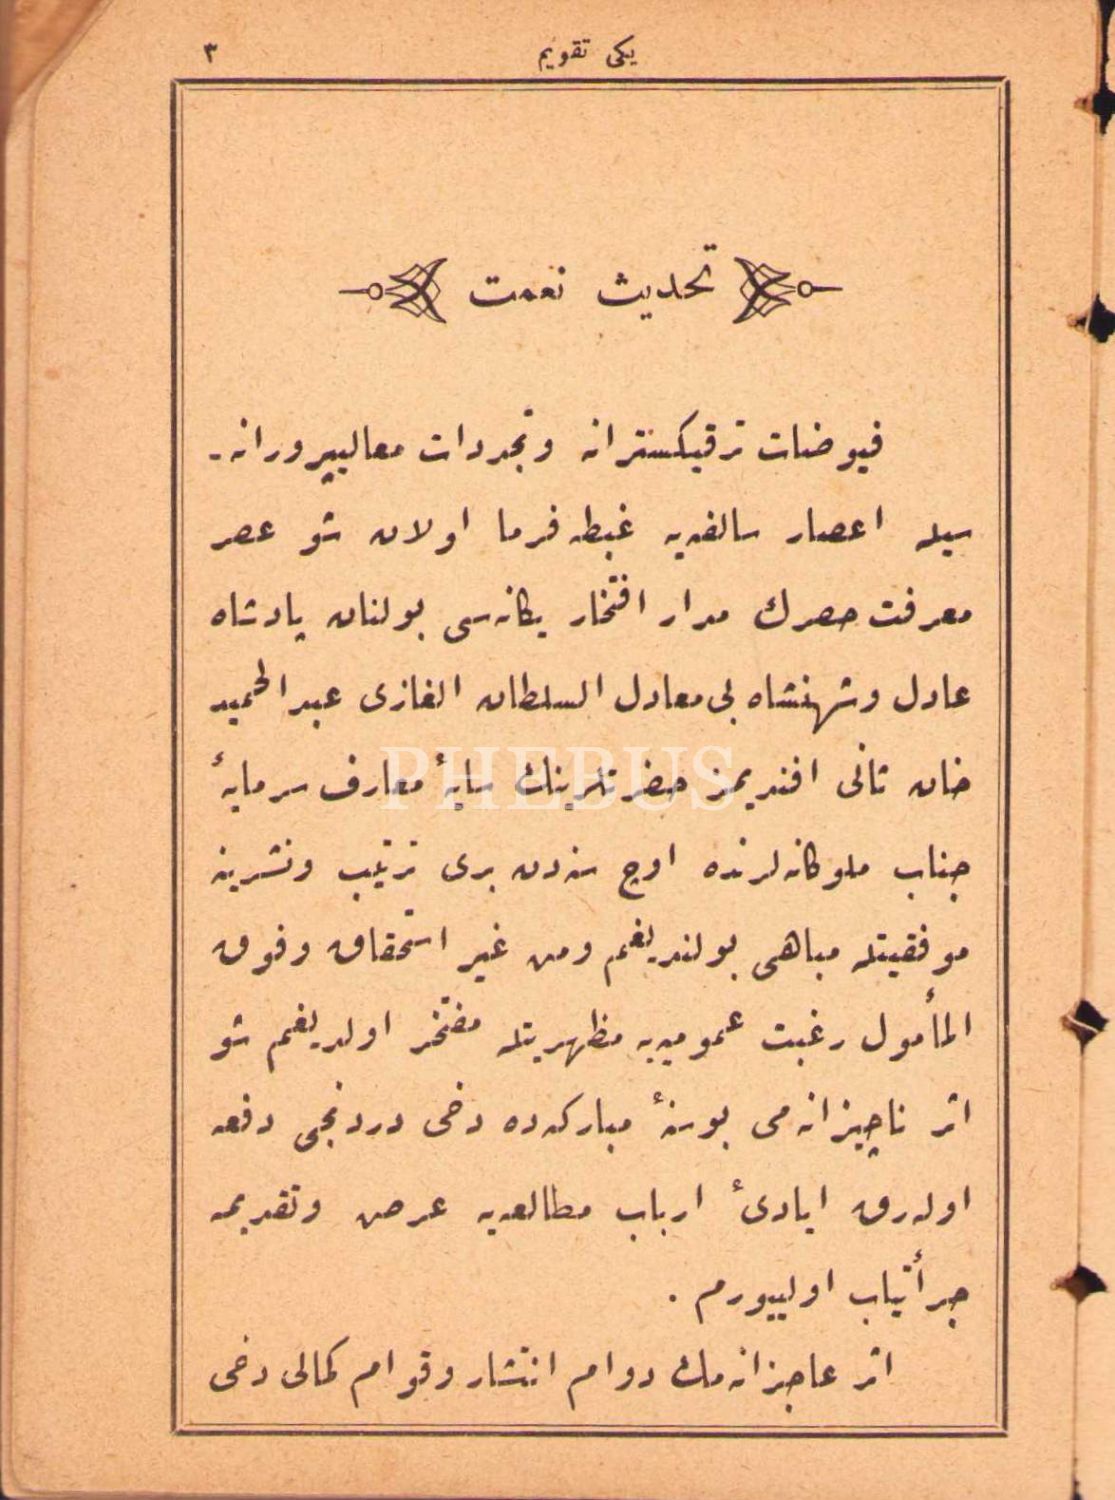 یکی تقویم ٣
تحدیث نعمت
فیوضات ترقیکسترانه وتجددات معالیپرورانه‌ـ
سیله اعصار سالفه‌یه غبطه فرما اولان شو عصر
معرفت حصرك مدار افتخار یكانه‌سی بولنان پادشاه
عادل وشهنشاه بی معادل السلطان الغازی عبدالحمید
خان ثانی افندیمز حضرتلرینك سایهٔ معارف سرمایهٔ
جناب ملوكانه‌لرنده اوچ سنه‌دن بری ترتیب ونشرینه
موفقیتله مباهی بولندیغم ومن غیر استحقاق وفوق
المأمول رغبت عمومیه‌یه مظهریتله مفتخر اولدیغم شو
اثر ناچیزانه‌می بوسنهٔ مباركه‌ده دخی دردنجی دفعه
اوله‌رق ایادیٔ ارباب مطالعه‌یه عرض وتقدیمه
جرأتیاب اولییورم .
اثر عاجزانه‌مك دوام انتشار وقوام كمالی دخی
PHEBUS